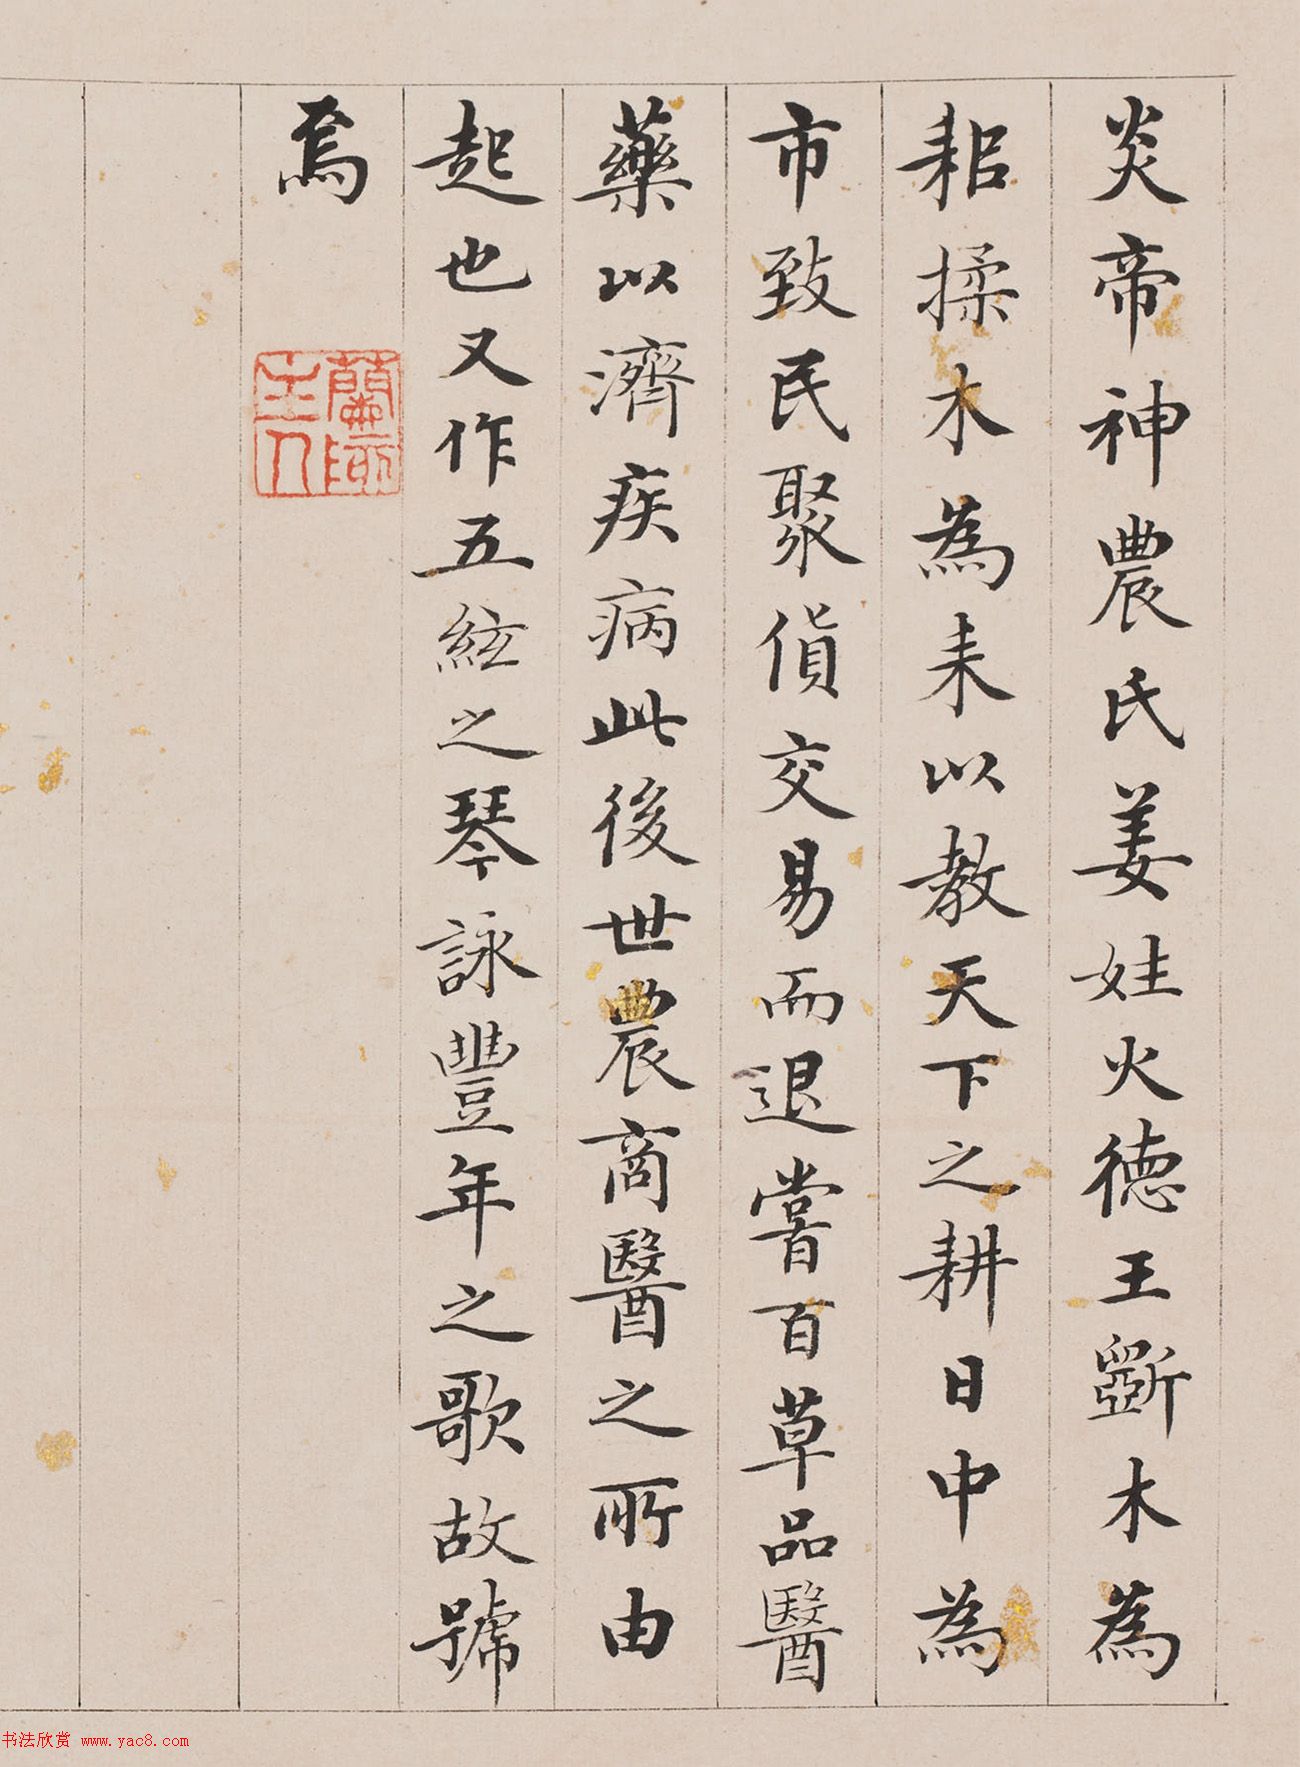 炎帝神農氏姜姓火德王斵木為
耜揉木為耒以教天下之耕日中為
市致民聚貨交易而退嘗百草品醫
藥以濟疾病此後世農商醫之所由
起也又作五絃之琴詠豐年之歌故號
焉
主人
书法欣赏 www.yac8.com